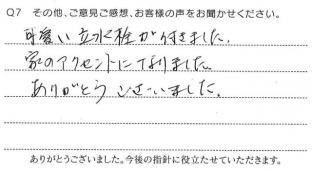 Q7 その他、ご意見ご感想、お客様の声をお聞かせください。
可愛い立水栓が付きました。
家のアクセントになりました。
ありがとうございました。
ありがとうございました。今後の指針に役立たせていただきます。